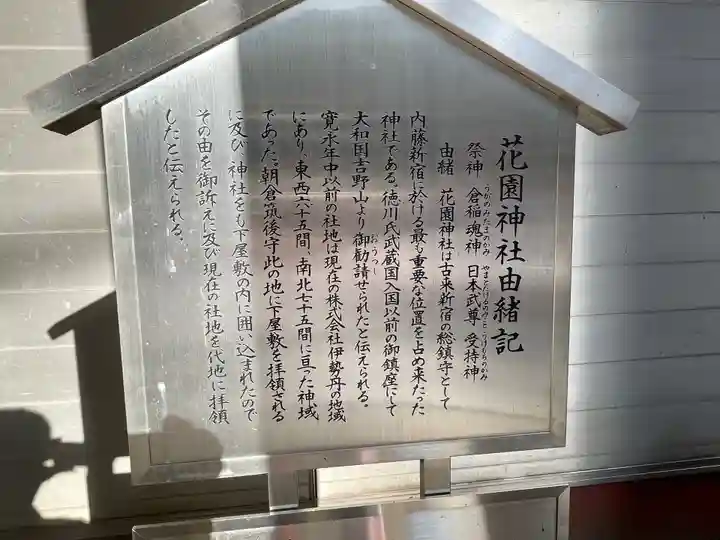 花園神社由緒記
祭神 倉稲魂神 日本武尊 受持神
うかのみたまのかみ やまとたけるのみこと うけもちのかみ
由緒 花園神社は古来新宿の総鎮守として
内藤新宿に於ける最も重要な位置を占め来たった
神社である。徳川氏武蔵国入国以前の御鎮座にて
大和国吉野山より御勧請せられたと伝えられる。
おうつし
寛永年中以前の社地は現在の株式会社伊勢丹の地域
にあり、東西六十五間、南北七十五間に亘った神域
であった。朝倉筑後守此の地に下屋敷を拝領される
に及び、神社をも下屋敷の内に囲い込まれたので
その由を御訴えに及び現在の社地を代地に拝領
したと伝えられる。